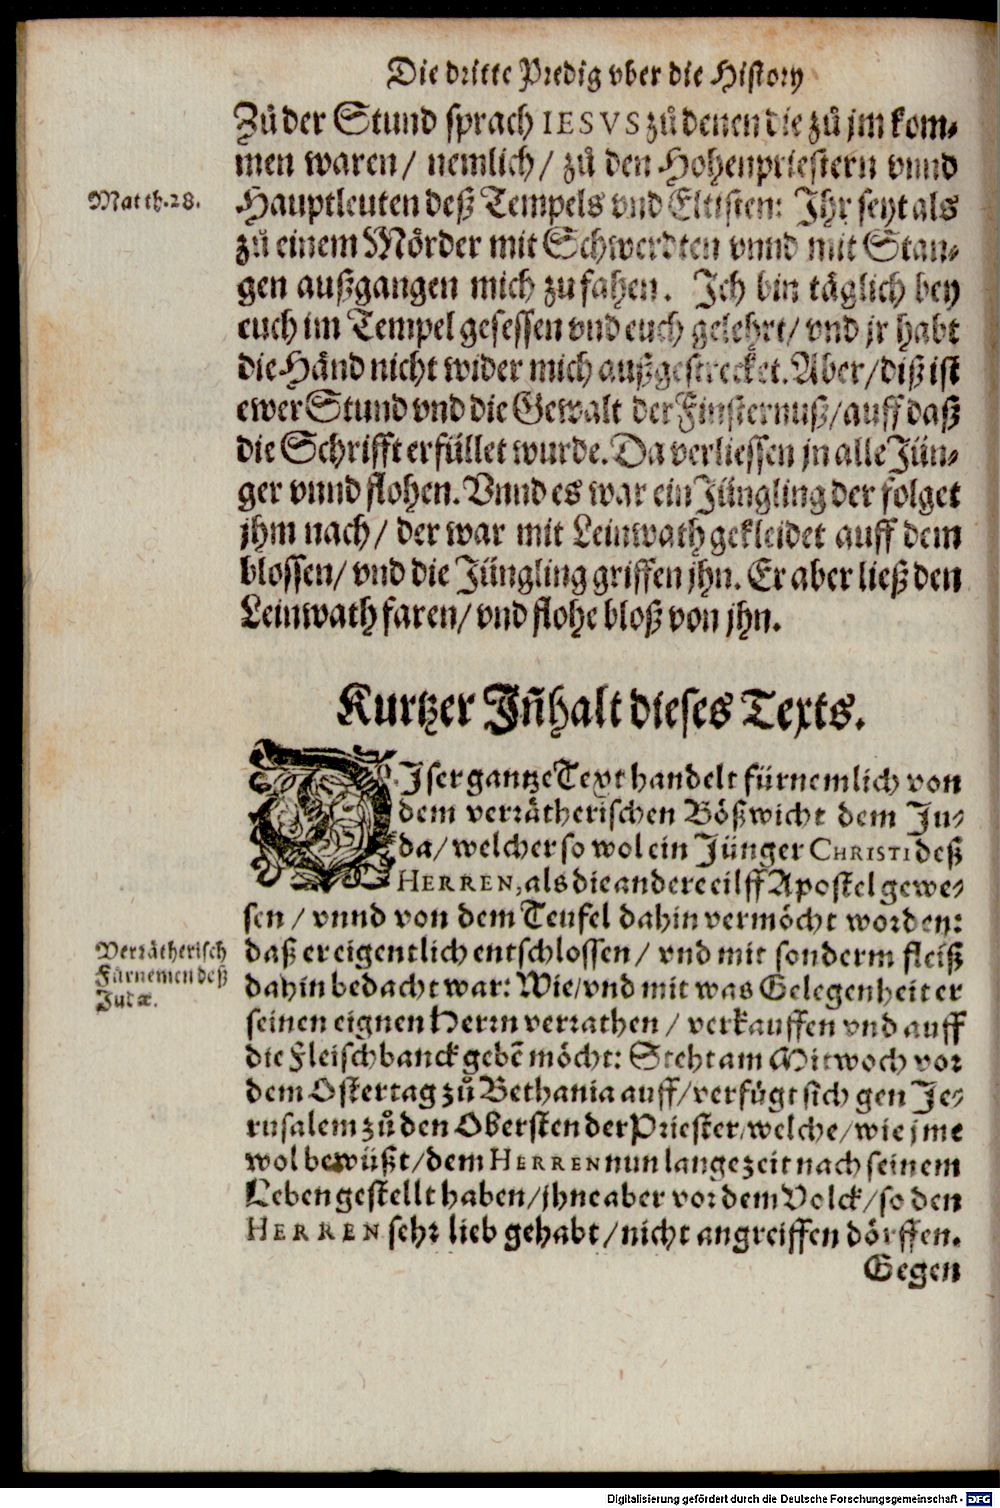 Die dritte Predig vber die History
Zů der Stund sprach IESVS zů denen die zů jm kom⸗
men waren/ nemlich/ zů den Hohenpriestern vnnd
Matth. 28.
Hauptleuten deß Tempels vnd Eltisten: Jhr seyt als
zů einem Mörder mit Schwerdten vnnd mit Stan⸗
gen außgangen mich zu fahen. Jch bin täglich bey
euch im Tempel gesessen vnd euch gelehrt/ vnd jr habt
die Händ nicht wider mich außgestrecket. Aber/ diß ist
ewer Stund vnd die Gewalt der Finsternuß/ auff daß
die Schrifft erfüllet wurde. Da verliessen jn alle Jün⸗
ger vnnd flohen. Vnnd es war ein Jüngling der folget
jhm nach/ der war mit Leinwath gekleidet auff dem
blossen/ vnd die Jüngling griffen jhn. Er aber ließ den
Leinwath faren/ vnd flohe bloß von jhn.
Kurtzer Jnñhalt dieses Texts.
DJser gantze Text handelt fürnemlich von
dem verrätherischen Bößwicht dem Ju⸗
da/ welcher so wol ein Jünger CHRISTI deß
HERREN, als die andere eilff Apostel gewe⸗
sen / vnnd von dem Teufel dahin vermöcht worden:
Verrätherisch
Fürnemen deß
Judæ.
daß er eigentlich entschlossen / vnd mit sonderm fleiß
dahin bedacht war: Wie/ vnd mit was Gelegenheit er
seinen eignen Herrn verrathen / verkauffen vnd auff
die Fleischbanck gebē möcht: Steht am Mitwoch vor
dem Ostertag zů Bethania auff/ verfügt sich gen Je⸗
rusalem zů den Obersten der Priester/ welche/ wie jme
wol bewüßt/ dem HERREN nun lange zeit nach seinem
Leben gestellt haben/ jhne aber vor dem Volck/ so den
HERREN sehr lieb gehabt/ nicht angreiffen dörffen.
Gegen
Digitalisierung gefördert durch die Deutsche Forschungsgemeinschaft - DFG